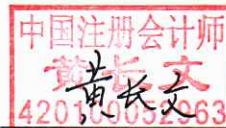 中国注册会计师
黄长文
黄长文
420100052963